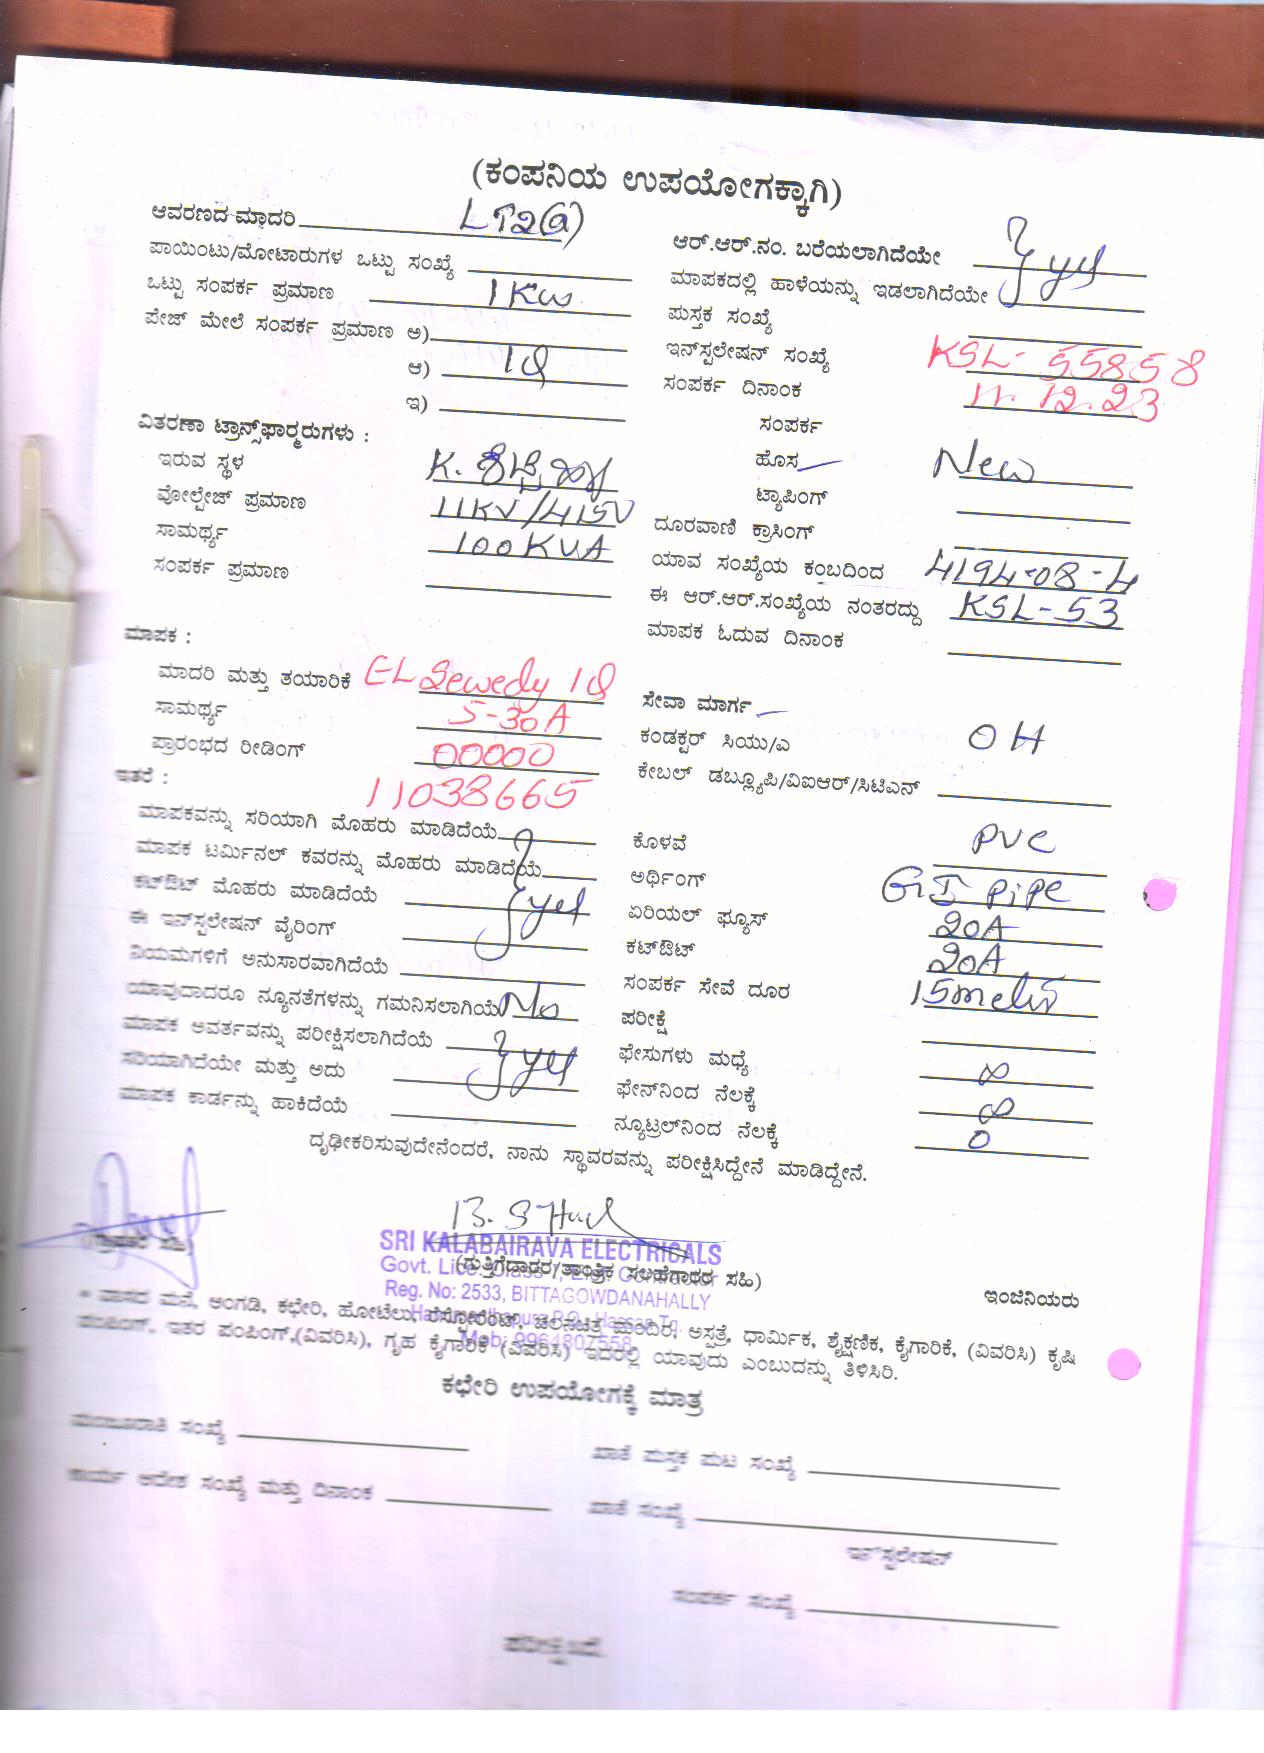 (ಕಂಪನಿಯ ಉಪಯೋಗಕ್ಕಾಗಿ)
ಆವರಣದ ಮಾದರಿ LT2(a)
ಪಾಯಿಂಟು/ಮೋಟಾರುಗಳ ಒಟ್ಟು ಸಂಖ್ಯೆ
ಒಟ್ಟು ಸಂಪರ್ಕ ಪ್ರಮಾಣ 1Kw
ಪೇಜ್ ಮೇಲೆ ಸಂಪರ್ಕ ಪ್ರಮಾಣ ಅ)
ಆ) 1φ
ಇ)
ವಿತರಣಾ ಟ್ರಾನ್ಸ್‌ಫಾರ್ಮರುಗಳು :
ಇರುವ ಸ್ಥಳ K.
ವೋಲ್ಟೇಜ್ ಪ್ರಮಾಣ 11KV/415V
ಸಾಮರ್ಥ್ಯ 100KVA
ಸಂಪರ್ಕ ಪ್ರಮಾಣ
ಮಾಪಕ :
ಮಾದರಿ ಮತ್ತು ತಯಾರಿಕೆ EL Sewedy 1φ
ಸಾಮರ್ಥ್ಯ 5-30A
ಪ್ರಾರಂಭದ ರೀಡಿಂಗ್ 00000
ಇತರೆ : 11038665
ಮಾಪಕವನ್ನು ಸರಿಯಾಗಿ ಮೊಹರು ಮಾಡಿದೆಯೆ
ಮಾಪಕ ಟರ್ಮಿನಲ್ ಕವರನ್ನು ಮೊಹರು ಮಾಡಿದೆಯೆ
ಕಟ್‌ಔಟ್ ಮೊಹರು ಮಾಡಿದೆಯೆ } yes
ಈ ಇನ್‌ಸ್ಟಲೇಷನ್ ವೈರಿಂಗ್
ನಿಯಮಗಳಿಗೆ ಅನುಸಾರವಾಗಿದೆಯೆ
ಯಾವುದಾದರೂ ನ್ಯೂನತೆಗಳನ್ನು ಗಮನಿಸಲಾಗಿಯೆ No
ಮಾಪಕ ಅವರ್ತವನ್ನು ಪರೀಕ್ಷಿಸಲಾಗಿದೆಯೆ
ಸರಿಯಾಗಿದೆಯೇ ಮತ್ತು ಅದು } yes
ಮಾಪಕ ಕಾರ್ಡನ್ನು ಹಾಕಿದೆಯೆ
ಆರ್.ಆರ್.ನಂ. ಬರೆಯಲಾಗಿದೆಯೇ } yes
ಮಾಪಕದಲ್ಲಿ ಹಾಳೆಯನ್ನು ಇಡಲಾಗಿದೆಯೇ
ಪುಸ್ತಕ ಸಂಖ್ಯೆ
ಇನ್‌ಸ್ಟಲೇಷನ್ ಸಂಖ್ಯೆ KSL-55858
ಸಂಪರ್ಕ ದಿನಾಂಕ 11.12.23
ಸಂಪರ್ಕ
ಹೊಸ New
ಟ್ಯಾಪಿಂಗ್
ದೂರವಾಣಿ ಕ್ರಾಸಿಂಗ್
ಯಾವ ಸಂಖ್ಯೆಯ ಕಂಬದಿಂದ 4194-08-4
ಈ ಆರ್.ಆರ್.ಸಂಖ್ಯೆಯ ನಂತರದ್ದು KSL-53
ಮಾಪಕ ಓದುವ ದಿನಾಂಕ
ಸೇವಾ ಮಾರ್ಗ
ಕಂಡಕ್ಟರ್ ಸಿಯು/ಎ OH
ಕೇಬಲ್ ಡಬ್ಲ್ಯೂಪಿ/ವಿಐಆರ್/ಸಿಟಿಎನ್
ಕೊಳವೆ PVC
ಅರ್ಥಿಂಗ್ GI Pipe
ಏರಿಯಲ್ ಫ್ಯೂಸ್ 20A
ಕಟ್‌ಔಟ್ 20A
ಸಂಪರ್ಕ ಸೇವೆ ದೂರ 15
ಪರೀಕ್ಷೆ
ಫೇಸುಗಳು ಮಧ್ಯೆ ∞
ಫೇಸ್‌ನಿಂದ ನೆಲಕ್ಕೆ ∞
ನ್ಯೂಟ್ರಲ್‌ನಿಂದ ನೆಲಕ್ಕೆ 0
ದೃಢೀಕರಿಸುವುದೇನೆಂದರೆ, ನಾನು ಸ್ಥಾವರವನ್ನು ಪರೀಕ್ಷಿಸಿದ್ದೇನೆ ಮಾಡಿದ್ದೇನೆ.
SRI KALABAIRAVA ELECTRICALS
(ಗುತ್ತಿಗೆದಾರರ/ತಾಂತ್ರಿಕ ಸಲಹೆಗಾರರ ಸಹಿ)
Reg. No: 2533, BITTAGOWDANAHALLY
Mob: 9964807558
ಇಂಜಿನಿಯರು
* ವಾಸದ ಮನೆ, ಅಂಗಡಿ, ಕಛೇರಿ, ಹೋಟೆಲು, ರೆಸ್ಟೋರೆಂಟ್, ಚಲನಚಿತ್ರ ಮಂದಿರ, ಅಸ್ಪತ್ರೆ, ಧಾರ್ಮಿಕ, ಶೈಕ್ಷಣಿಕ, ಕೈಗಾರಿಕೆ, (ವಿವರಿಸಿ) ಕೃಷಿ
ಪಂಪಿಂಗ್, ಇತರ ಪಂಪಿಂಗ್,(ವಿವರಿಸಿ), ಗೃಹ ಕೈಗಾರಿಕೆ (ವಿವರಿಸಿ) ಇದರಲ್ಲಿ ಯಾವುದು ಎಂಬುದನ್ನು ತಿಳಿಸಿರಿ.
ಕಛೇರಿ ಉಪಯೋಗಕ್ಕೆ ಮಾತ್ರ
ಮಂಜೂರಾತಿ ಸಂಖ್ಯೆ
ಖಾತೆ ಪುಸ್ತಕ ಪುಟ ಸಂಖ್ಯೆ
ಕಾರ್ಯ ಆದೇಶ ಸಂಖ್ಯೆ ಮತ್ತು ದಿನಾಂಕ
ಖಾತೆ ಸಂಖ್ಯೆ
ಇನ್‌ಸ್ಟಲೇಷನ್
ಸಂಪರ್ಕ ಸಂಖ್ಯೆ